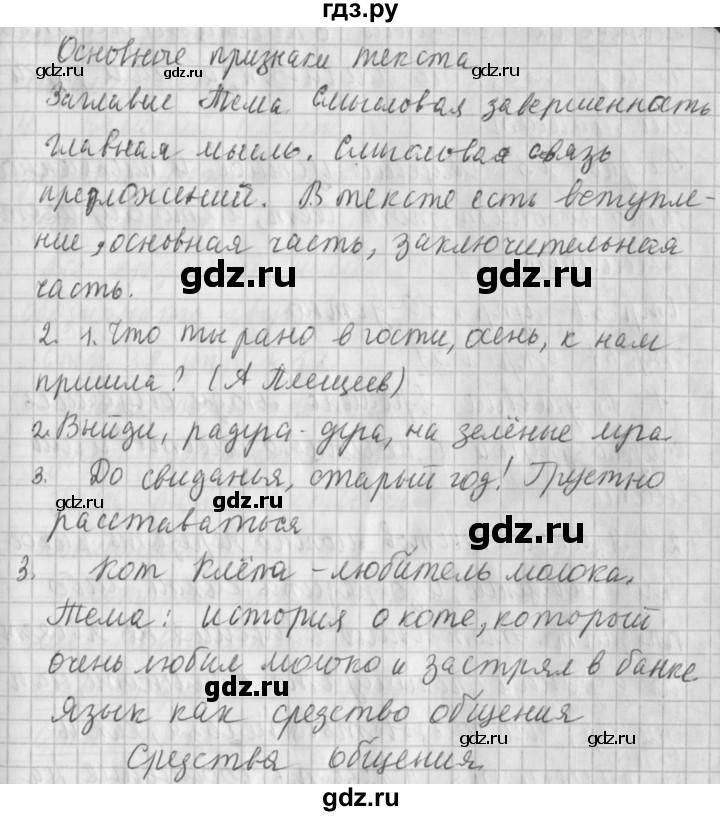 гдз.ру
Основные признаки текста
gdz.ru gdz.ru gdz.ru
Заглавие Тема Смысловая завершенность
главная мысль. Смысловая связь
предложений. В тексте есть вступле-
ние, основная часть, заключительная
gdz.ru gdz.ru
часть.
2. 1. Что ты рано в гости, осень, к нам
пришла? (А Плещеев)
2. Выйди, радуга-дуга, на зелёные луга
3. До свиданья, старый год! Грустно
gdz.ru gdz.ru gdz.ru
расставаться
gdz.ru
3. Кот Клёпа - любитель молока.
Тема: история о коте, который
очень любил молоко и застрял в банке
gdz.ru
Язык как средство общения
Средства общения
gdz.ru gdz.ru gdz.ru
gdz.ru